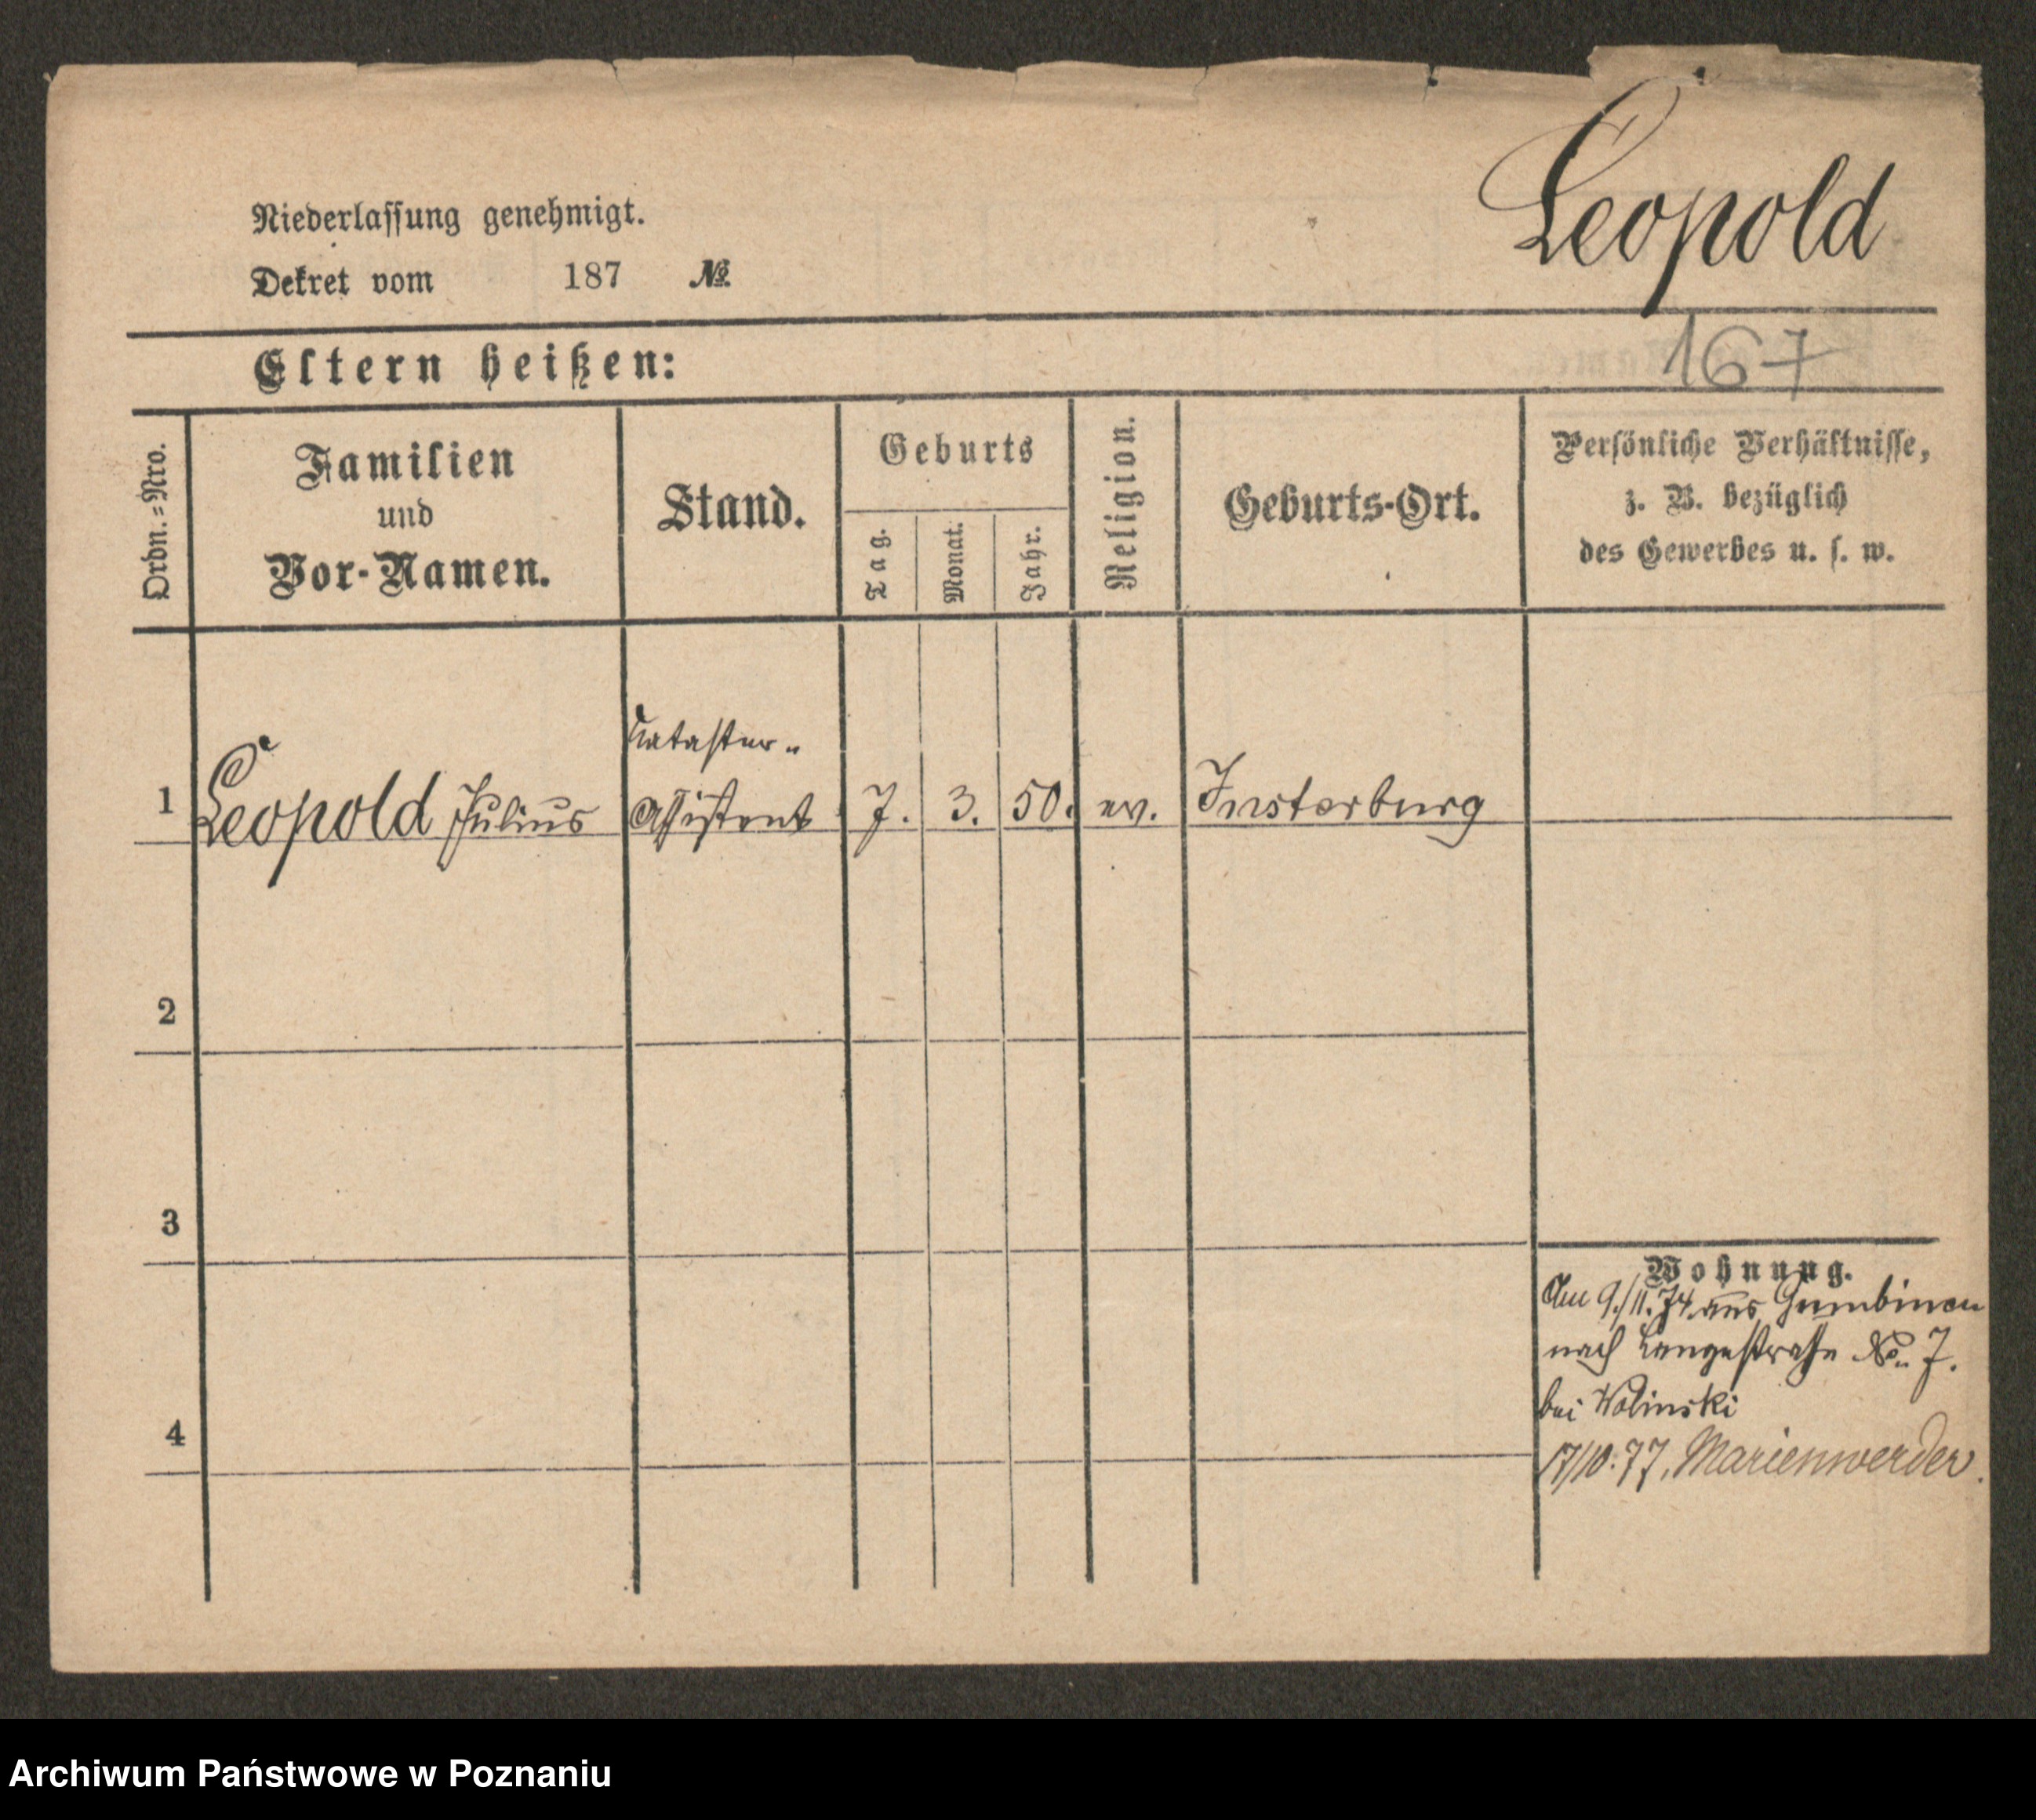 Leopold
Niederlassung genehmigt.
Dekret vom 187 №
167
Eltern heißen:
Ordn.=Nro.
Familien
und
Vor-Namen.
Stand.
Geburts
Tag.
Monat.
Jahr.
Religion.
Geburts-Ort.
Persönliche Verhältnisse,
z. B. bezüglich
des Gewerbes u. s. w.
Kataster-
1 Leopold Julius Assistent 7. 3. 50. ev. Insterburg
2
3
4
Wohnung.
Am 9./11. 74 aus Gumbinen
nach Langestraße No. 7.
bei Wolinski
17/10. 77. Marienwerder.
Archiwum Państwowe w Poznaniu